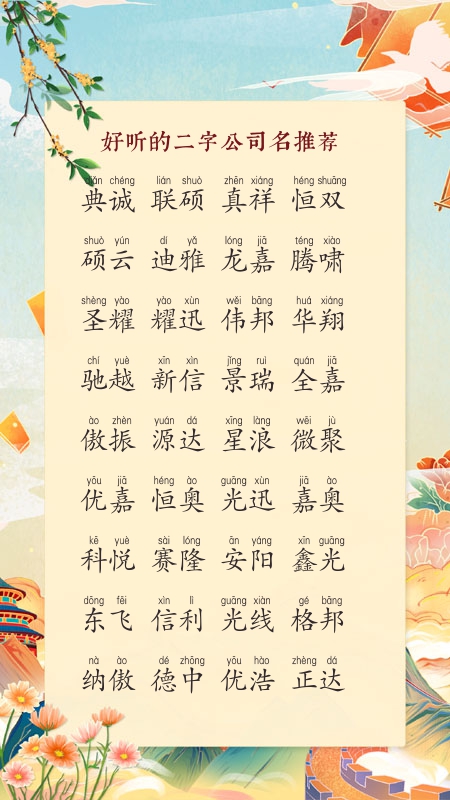 好听的二字公司名推荐
diǎn chéng lián shuò zhēn xiáng héng shuāng
典诚 联硕 真祥 恒双
shuò yún dí yǎ lóng jiā téng xiào
硕云 迪雅 龙嘉 腾啸
shèng yào yào xùn wěi bāng huá xiáng
圣耀 耀迅 伟邦 华翔
chí yuè xīn xìn jǐng ruì quán jiā
驰越 新信 景瑞 全嘉
ào zhèn yuán dá xīng làng wēi jù
傲振 源达 星浪 微聚
yōu jiā héng ào guāng xùn jiā ào
优嘉 恒奥 光迅 嘉奥
kē yuè sài lóng ān yáng xīn guāng
科悦 赛隆 安阳 鑫光
dōng fēi xìn lì guāng xiàn gé bāng
东飞 信利 光线 格邦
nà ào dé zhōng yōu hào zhèng dá
纳傲 德中 优浩 正达